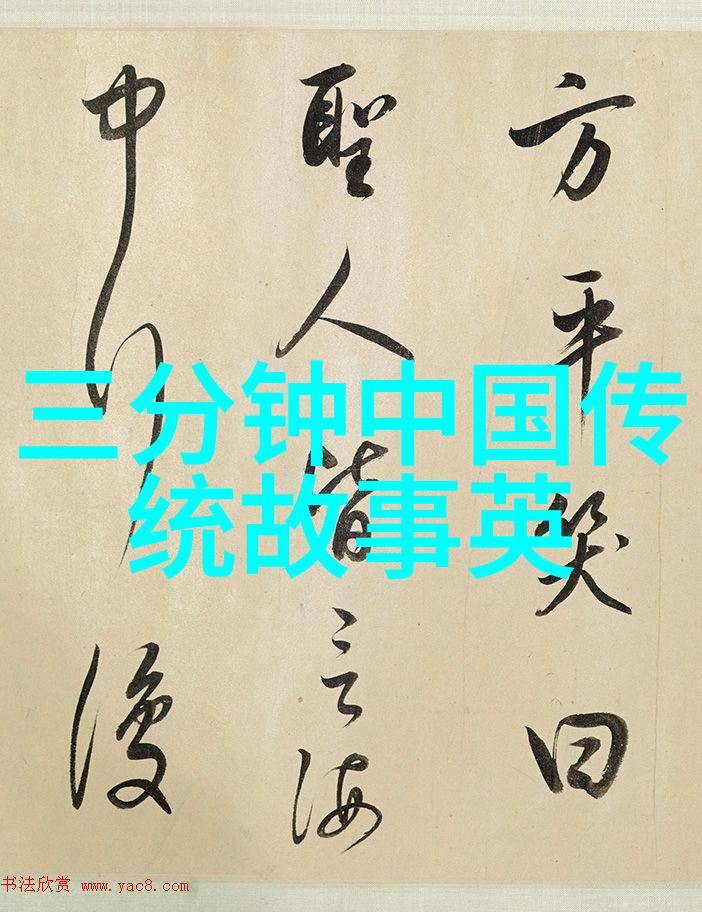 方平笑曰
聖人皆言海
中行復
三分钟中国传
统故事英
书法欣赏 www.yac8.com